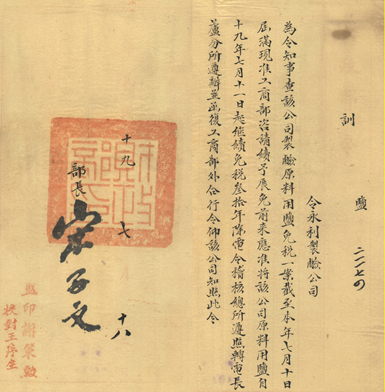 訓
鹽
令永利製鹼公司
為令知事查該公司製鹼原料用鹽免稅一案截至本年七月十日
屆滿現准工商部咨請續予展免前來應准將該公司原料用鹽自
十九年七月十一日起繼續免稅叁拾年除電令稽核總所遵照轉電長
蘆分所遵辦並函復工商部外合行令仰該公司知照此令
部長宋子文
十九 七 十八
監印謝策勳
校對王序生